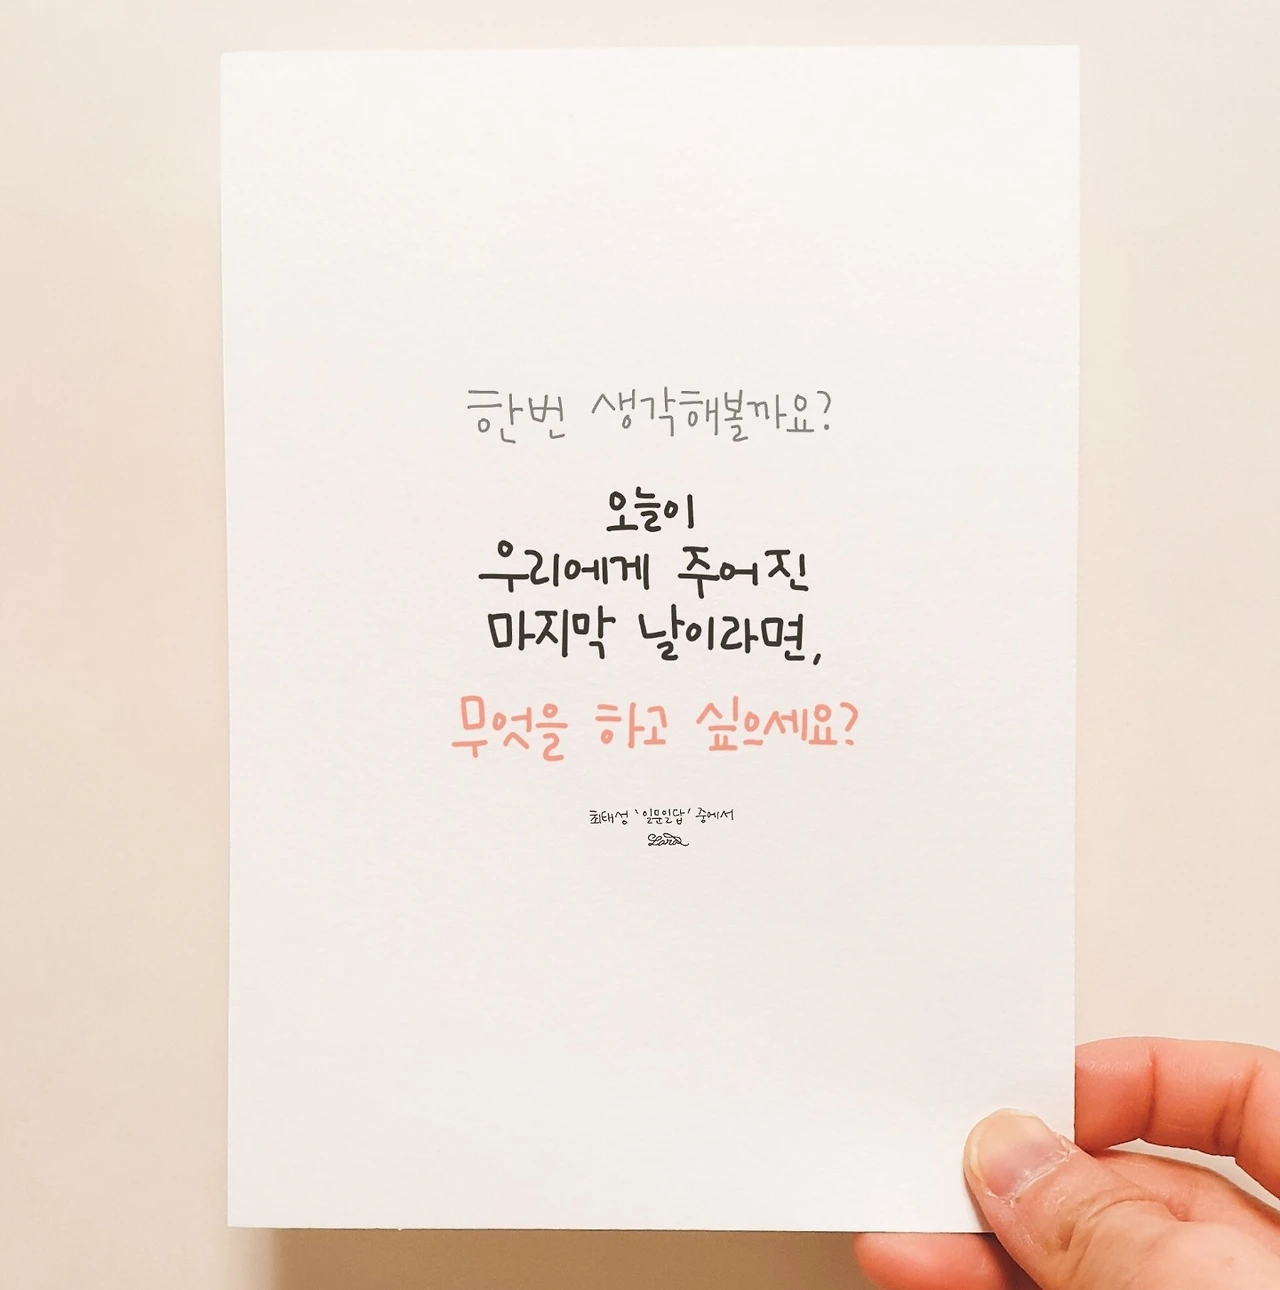 한번 생각해볼까요?
오늘이
우리에게 주어진
마지막 날이라면,
무엇을 하고 싶으세요?
최태성 '일문일답' 중에서
Lara